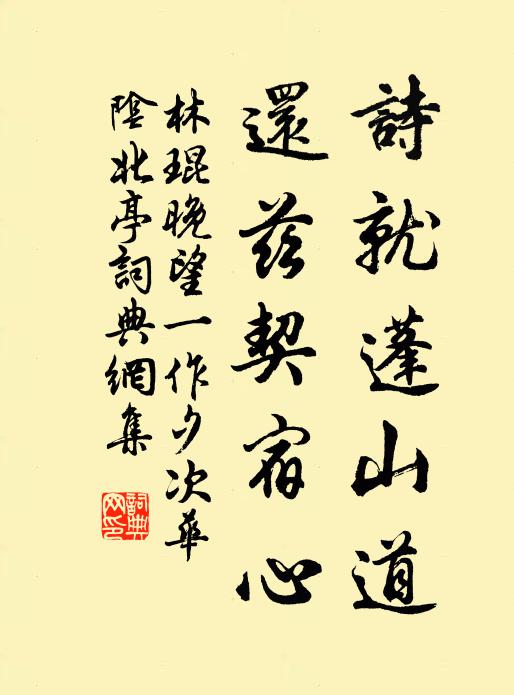 詩就蓬山道
還茲契宿心
林琨晚望一作夕次華
陰北亭詞典網集
詞典網印